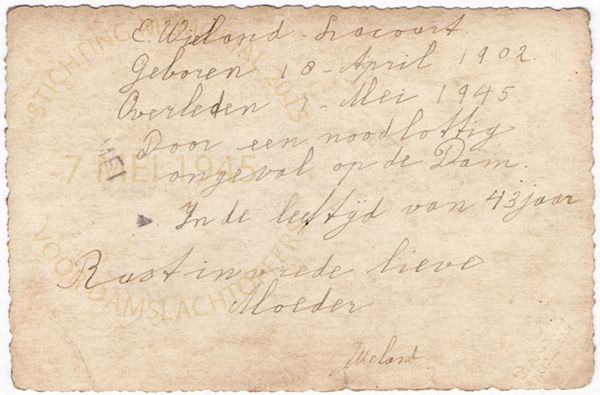 E. Wieland - Lacourt
Geboren 18 - April 1902.
Overleden 7 - Mei 1945
Door een noodlottig
ongeval op de Dam.
In de leeftijd van 43 jaar
Rust in vrede lieve
Moeder
Wieland
MEI
7 MEI 1945
STICHTING 2015
VOOR DAMSLACHTOFFERS